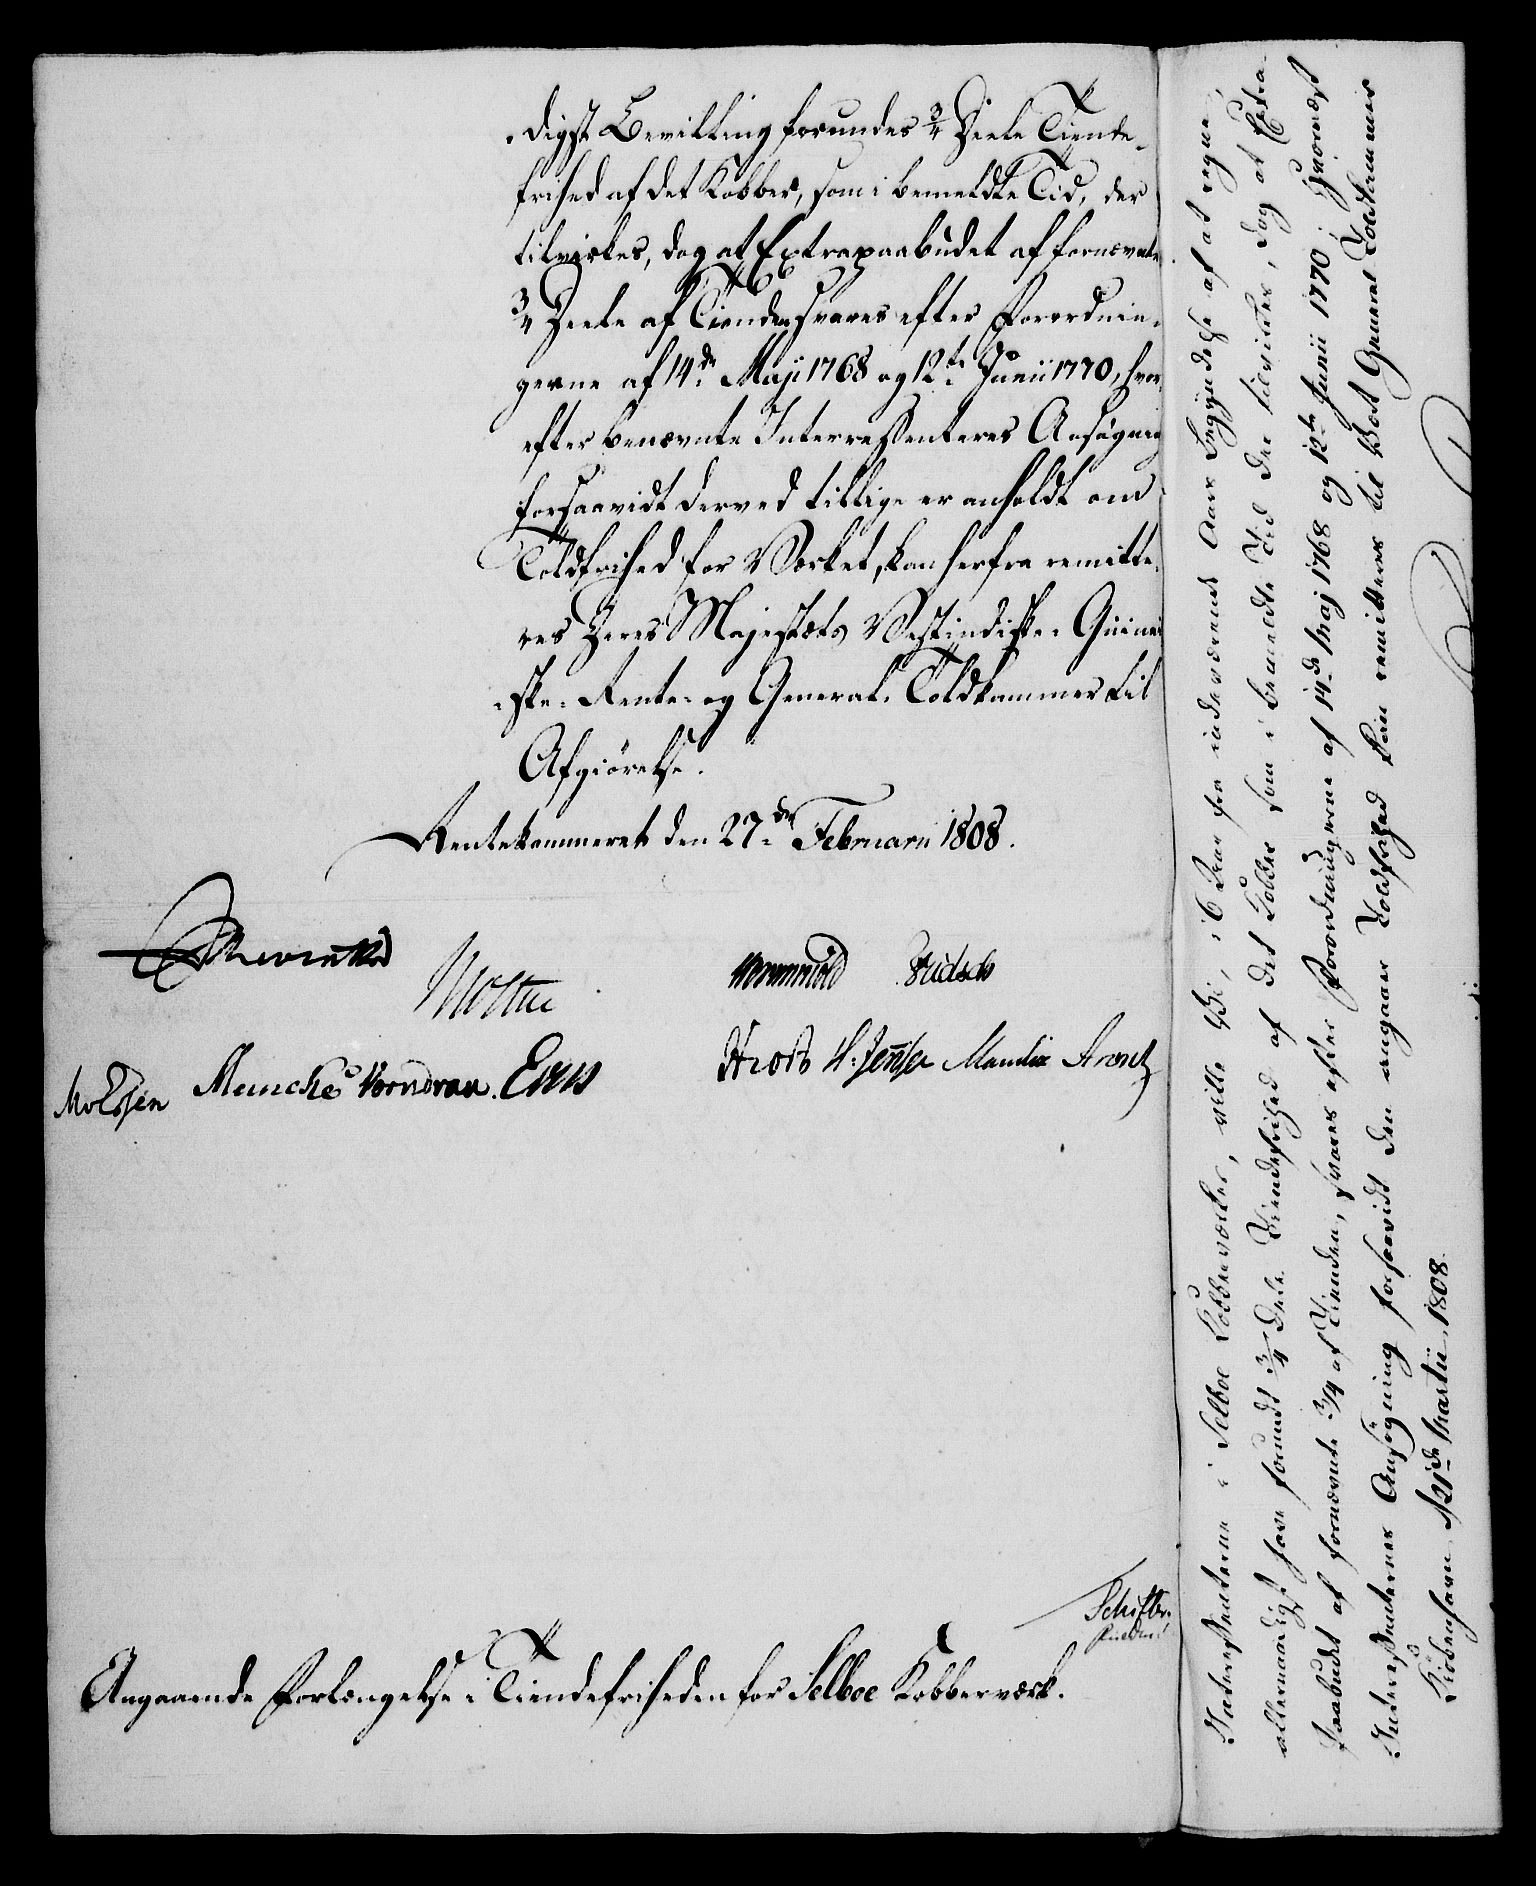 digst Bevilling forundes 3/4 Deele Tiende-
frihed af det Kobber, som i bemeldte Tid, der
tilvirkes, dog at Extrapaabudet af fornævnte
3/4 Deele af Tienden svares efter Forordnin-
gerne af 14de Maji 1768 og 12te Junii 1770, hvor-
efter benævnte Interressenteres Ansøgning
forsaavidt derved tillige er anholdt om
Toldfrihed for Værket, kan herfra remitte-
res Deres Majestæts Vestindiske- Guinei-
ske- Rente- og General- Toldkammer til
Afgiørelse.
Rentekammeret den 27de Februarii 1808.
Reventlow
Moltke
Wormskiold
Meincke Vorndran.
H. Jensen Manthe Arentz
Schifter.
Angaaende Forlængelse i Tiendefriheden for Selboe Kobberværk.
Interessenterne i Selboe Kobberværker, ville Vi, i 6 Aar fra indeværende Aars Begyndelse af at regne,
allernaadigst have forundt 3/4 Dele Tiendefrihed af det Kobber som i bemeldte Tid der tilvirkes, dog at Extra-
paabudet af fornævnte 3/4 af Tienden, svares efter Forordningerne af 14de Maj 1768 og 12te Junii 1770; hvornæst
Interessenternes Ansøgning forsaavidt den angaaer Toldfrihed kan remitteres til Vort General Toldkammer
Kiøbenhavn d. 21de Martii 1808.